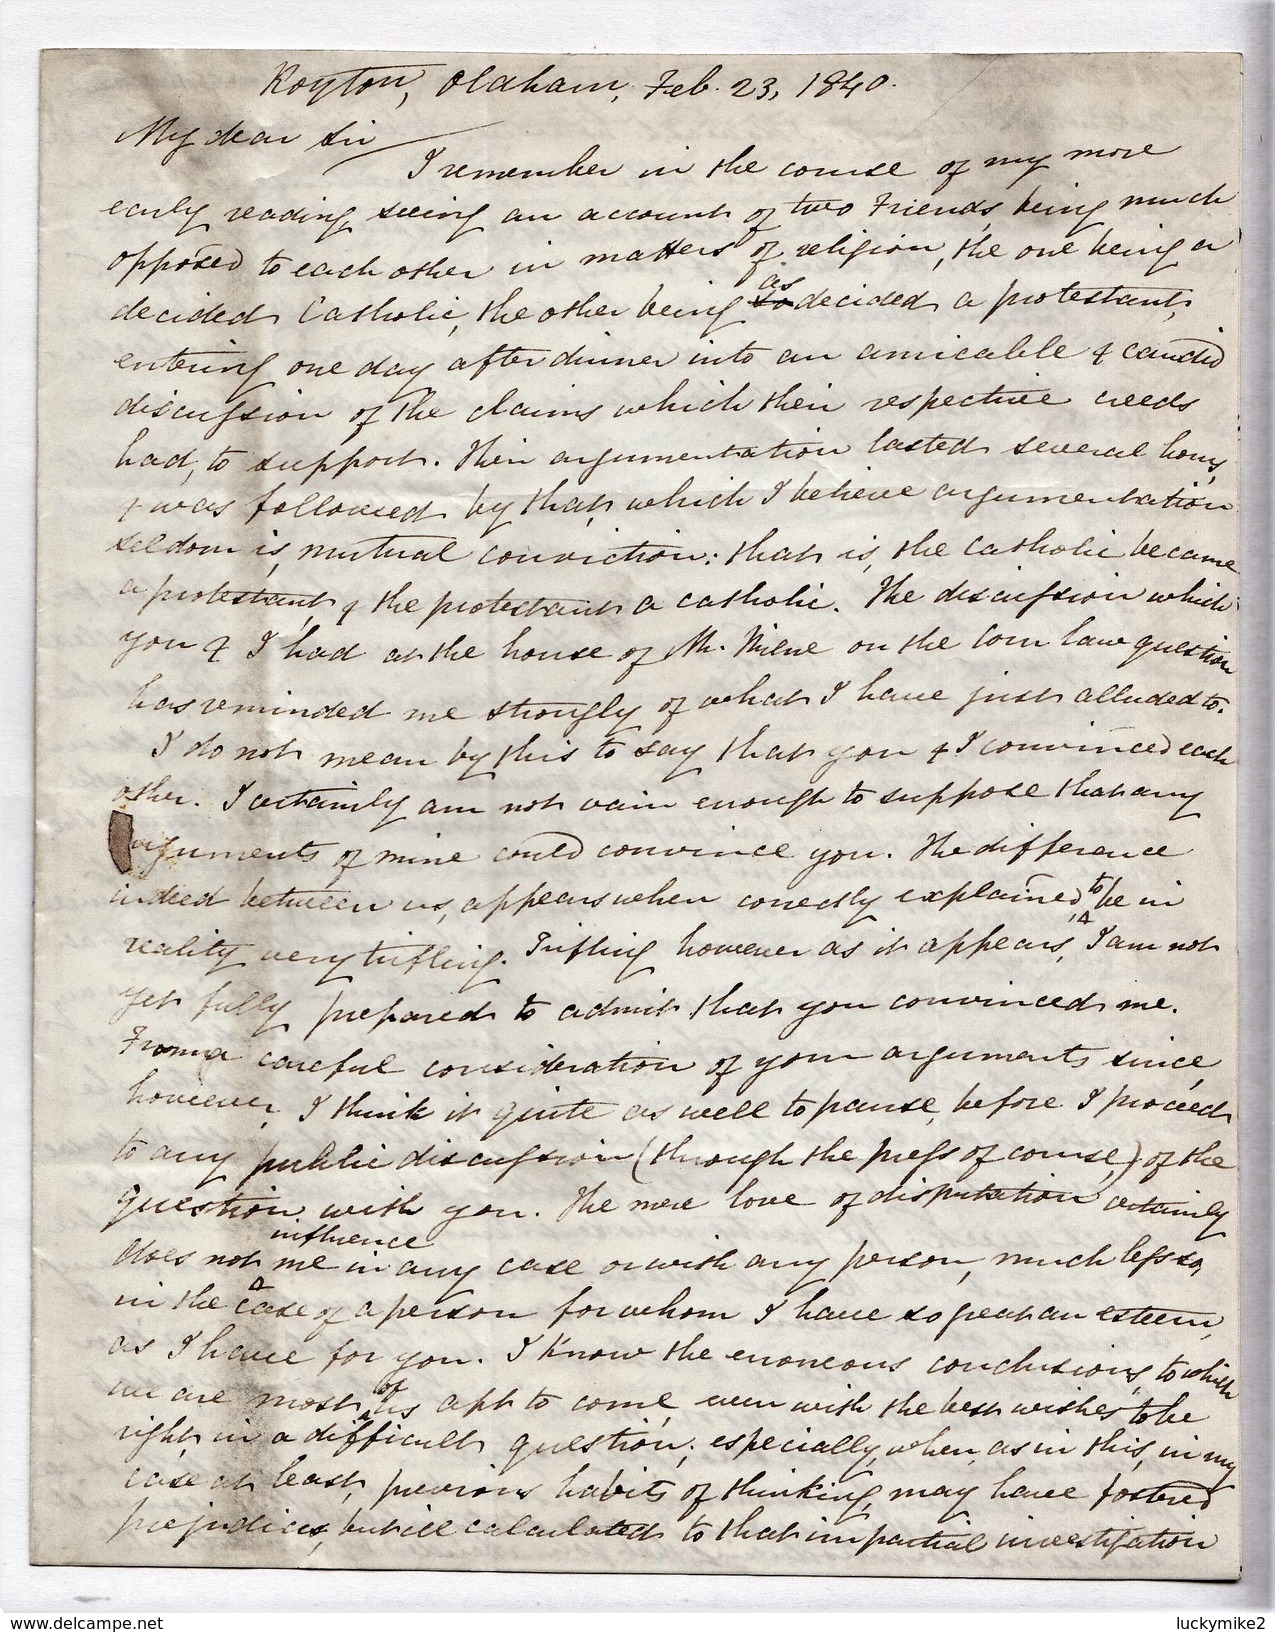 Royton, Oldham, Feb. 23, 1840.
My dear Sir
I remember in the course of my more
early reading seeing an account of two Friends, being much
opposed to each other in matters of religion, the one being a
decided Catholic, the other being so as decided a protestant,
entering one day after dinner into an amicable & candid
discussion of the claims which their respective creeds
had, to support. Their argumentation lasted several hours,
& was followed by that, which I believe argumentation
seldom is, mutual conviction: that is, the catholic became
a protestant, & the protestant a catholic. The discussion which
you & I had at the house of Mr. Milne on the Corn law question
has reminded me strongly of what I have just alluded to.
I do not mean by this to say that you & I convinced each
other. I certainly am not vain enough to suppose that any
arguments of mine could convince you. The difference
indeed between us, appears when correctly explained, to be in
reality very trifling. Trifling however as it appears, I am not
yet fully prepared to admit that you convinced me.
From a careful consideration of your arguments since,
however, I think it quite as well to pause, before I proceed
to any public discussion (through the press of course,) of the
question with you. The mere love of disputation certainly
does not influence me in any case or with any person, much less so,
in the case of a person for whom I have so great an esteem,
as I have for you. I know the erroneous conclusions, to which
we are most of us apt to come, even with the best wishes to be
right, in a difficult question; especially, when, as in this, in my
case at least, previous habits of thinking, may have fostered
prejudices, but ill calculated to that impartial investigation
www.delcampe.net
luckymike2